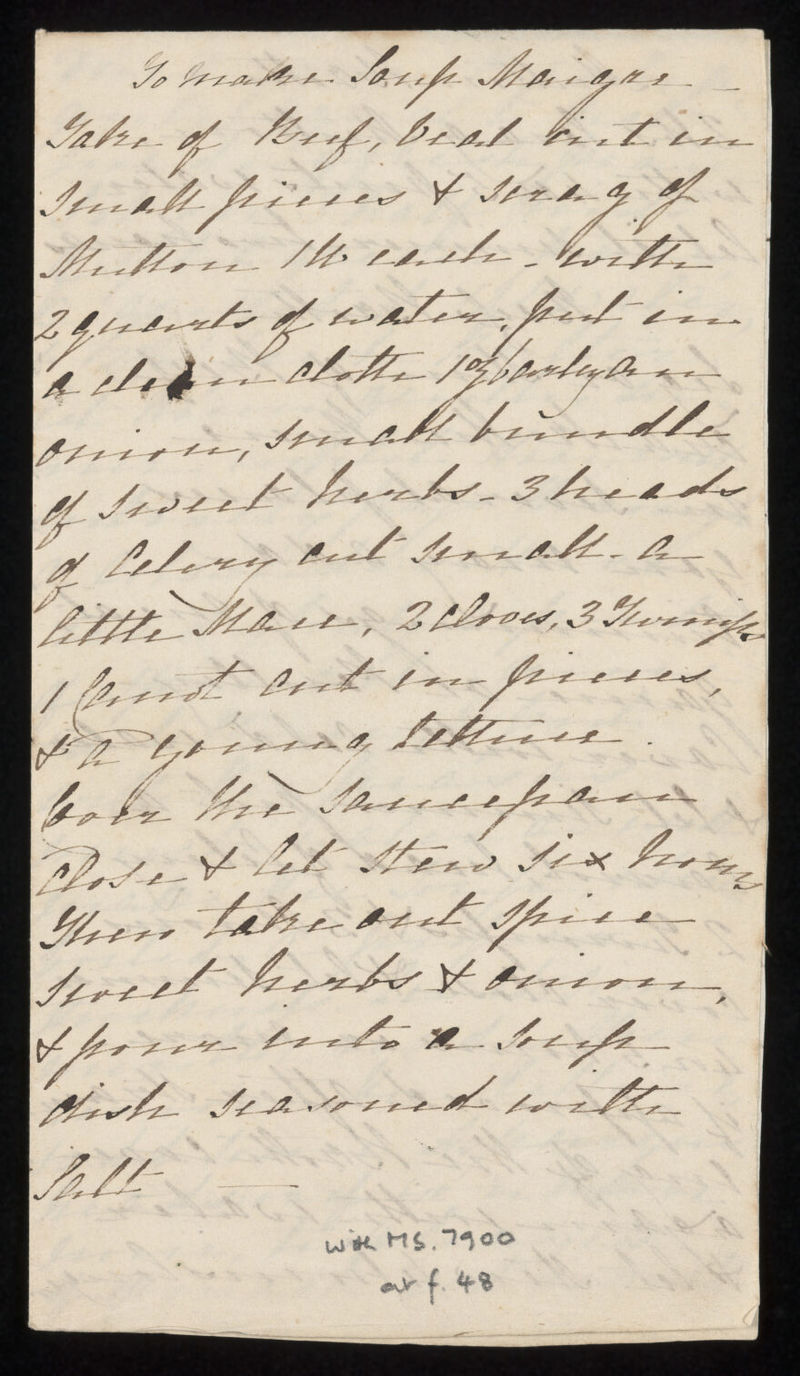 To make Soup Maigre
Take of Beef, beat cut in
small pieces & scrag of
Mutton 1 lb each - with
2 quarts of water, put in
a clean cloth 1 oz barley an
onion, small bundle
of sweet herbs - 3 heads
of Celery cut small - a
little Mace, 2 cloves, 3 Turnips
1 Carrot cut in pieces,
& a young lettuce.
Cover the saucepan
close & let stew six hours
Then take out spice
sweet herbs & onion,
& pour into a soup
dish seasoned with
Salt —
with MS. 7900
at f. 48